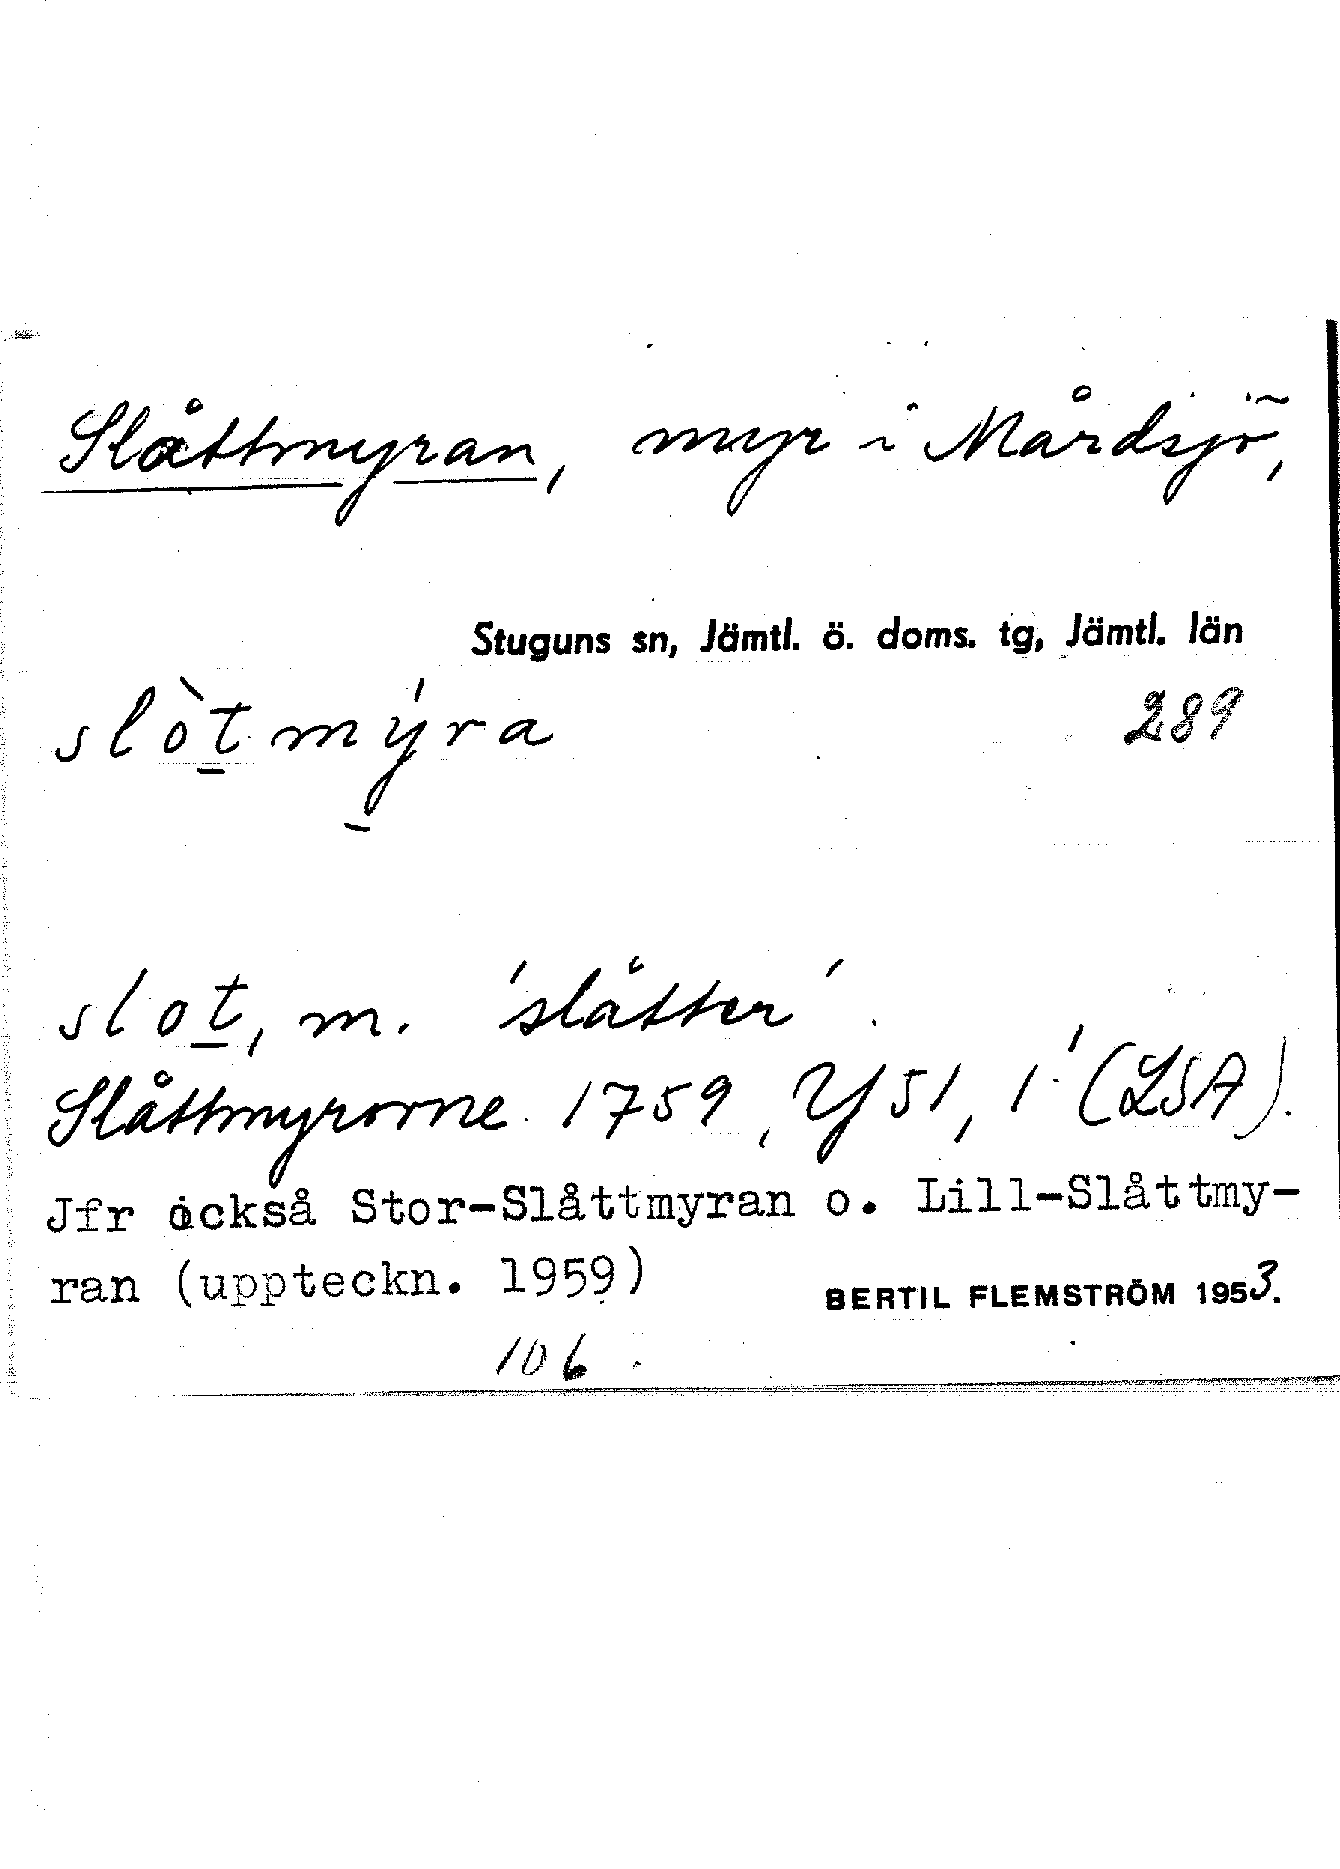 Slåttmyran, myr i Mårdsjö,
Stuguns sn, Jämtl. ö. doms. tg, Jämtl. län
slòt̲mýr̲a 289
slot̲, m. 'slåtter'.
Slåttmyrorne 1759, Y51, 1' (LSA).
Jfr också Stor-Slåttmyran o. Lill-Slåttmy-
ran (uppteckn. 1959)
BERTIL FLEMSTRÖM 1953.
106